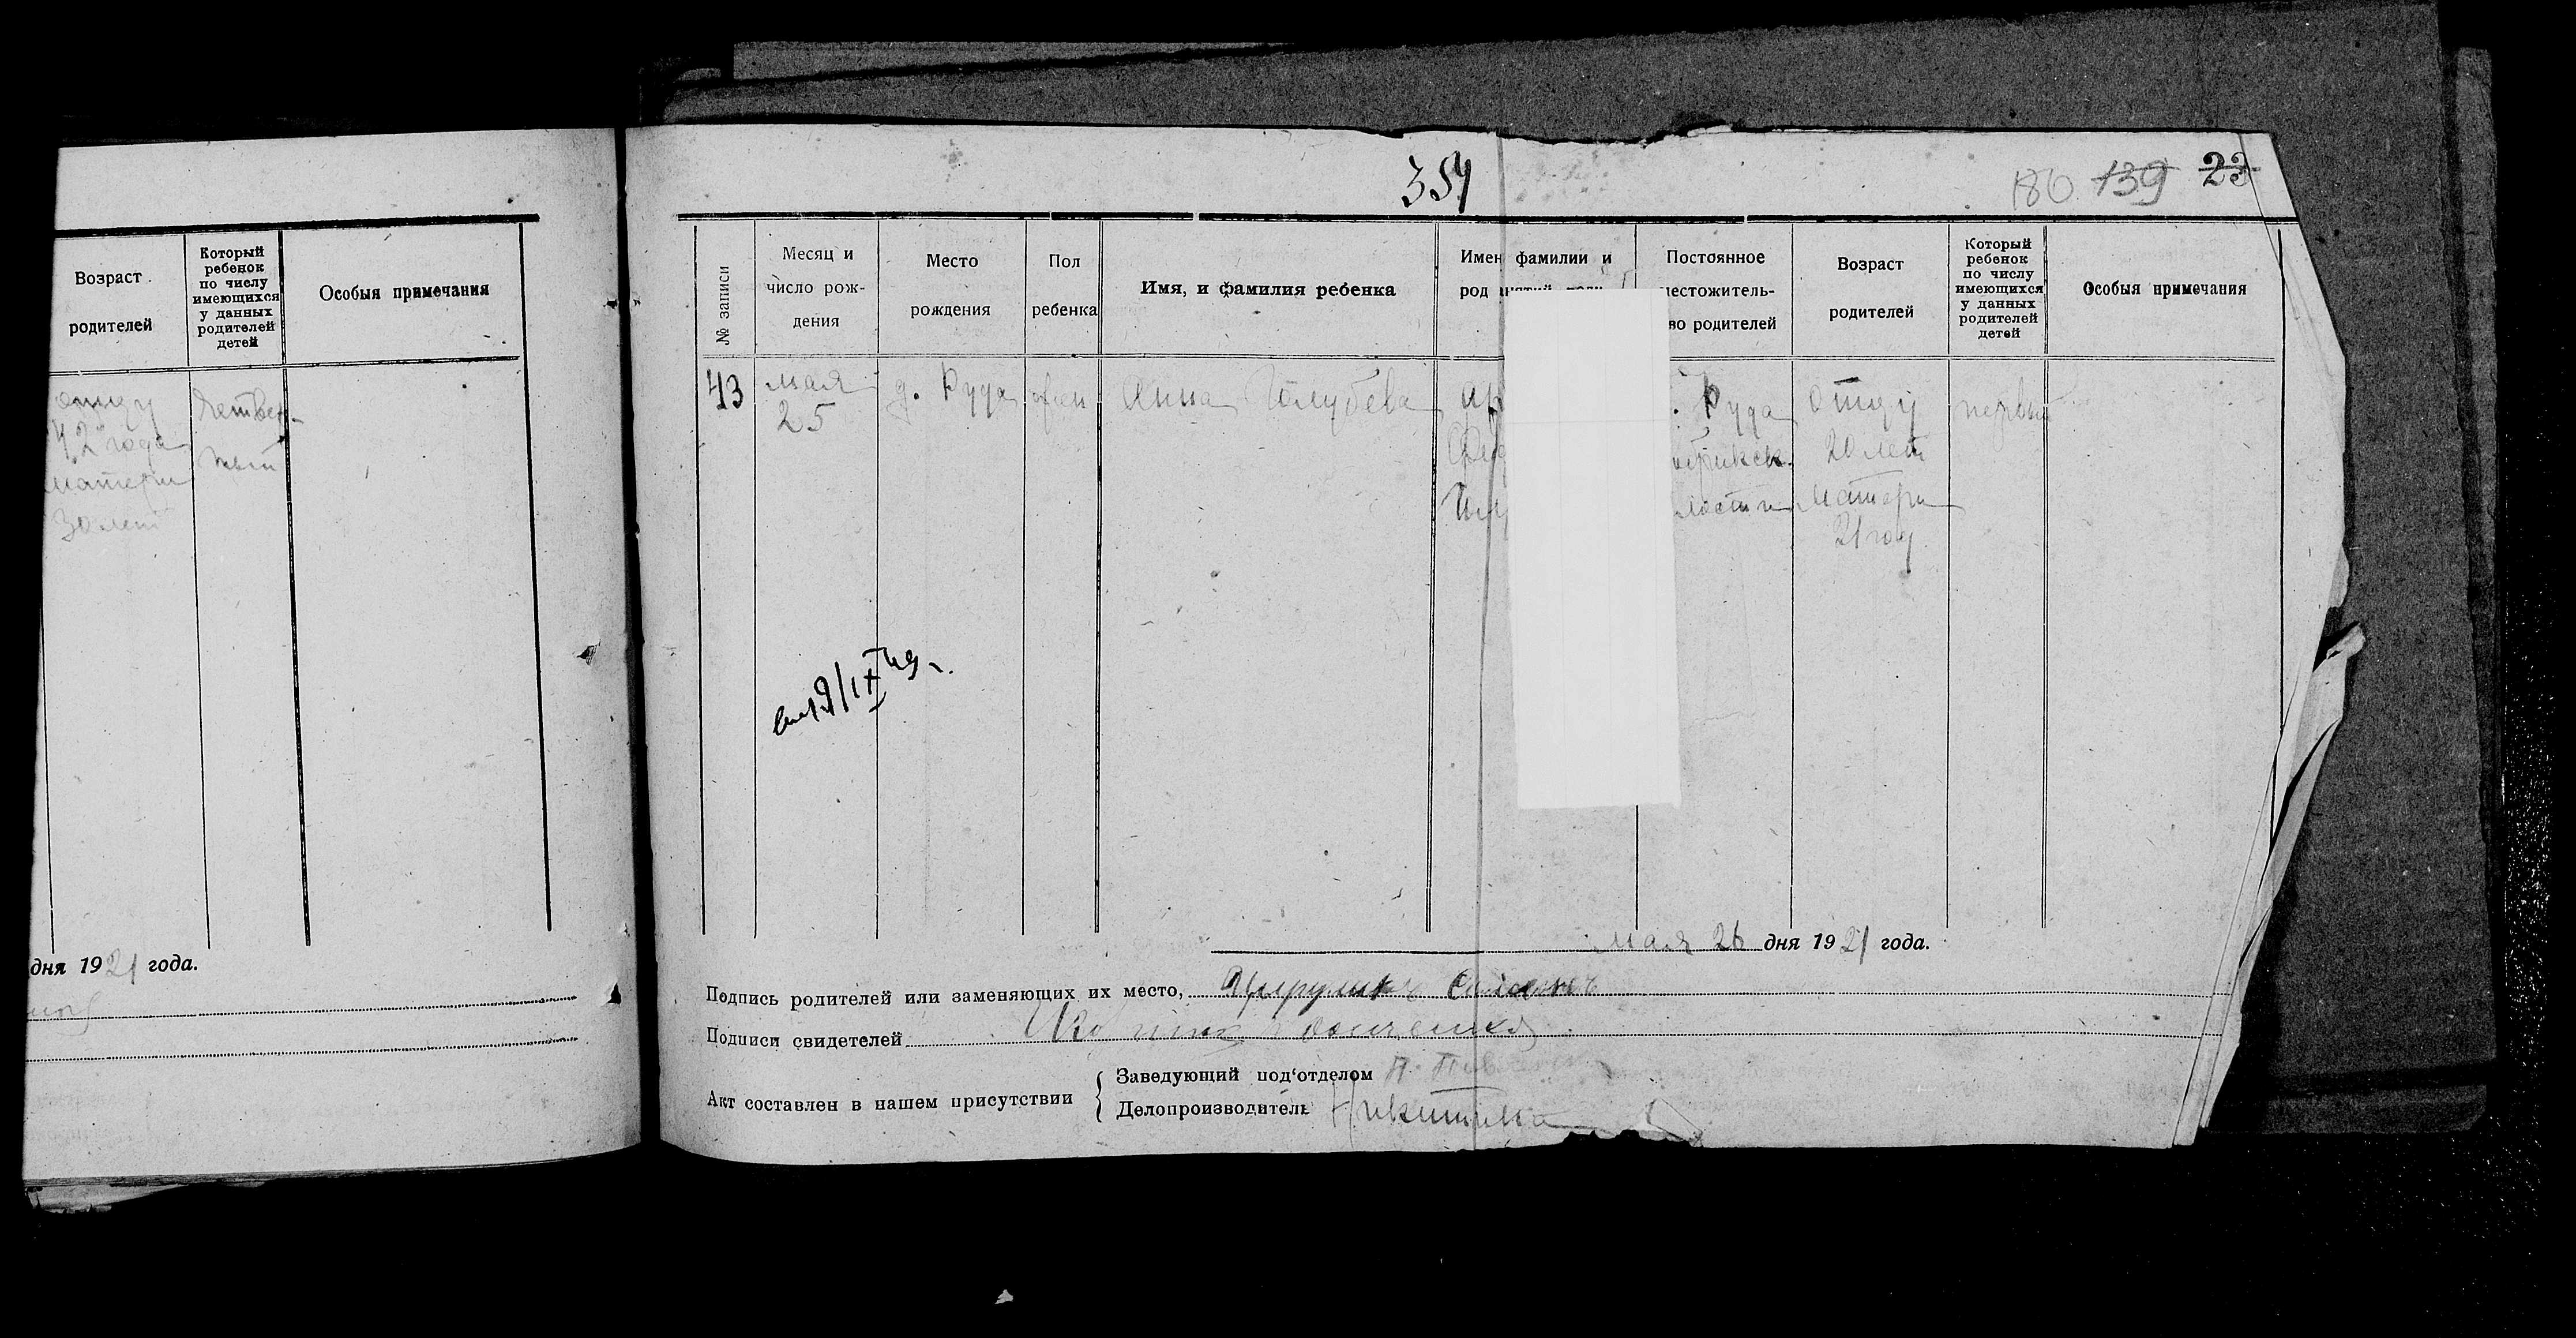 Возраст
родителей
Который
ребенок
по числу
имеющихся
у данных
родителей
детей
Особыя примечания
отцу
42 года
матери
30 лет
дня 1921 года.
354
180 139 23
№ записи
Месяц и
число рож-
дения
Место
рождения
Пол
ребенка
Имя, и фамилия ребенка
Имен фамилии и
род
Постоянное
местожитель-
во родителей
Возраст
родителей
Который
ребенок
по числу
имеющихся
у данных
родителей
детей
Особыя примечания
43
мая
25
д. Руда
жен
Анна Голубева
. Руда
отцу
20 лет
матери
21 год
первый
мая 26 дня 1921 года.
Подпись родителей или заменяющих их место,
Подписи свидетелей
Акт составлен в нашем присутствии
Заведующий под'отделом
Делопроизводитель Никитина